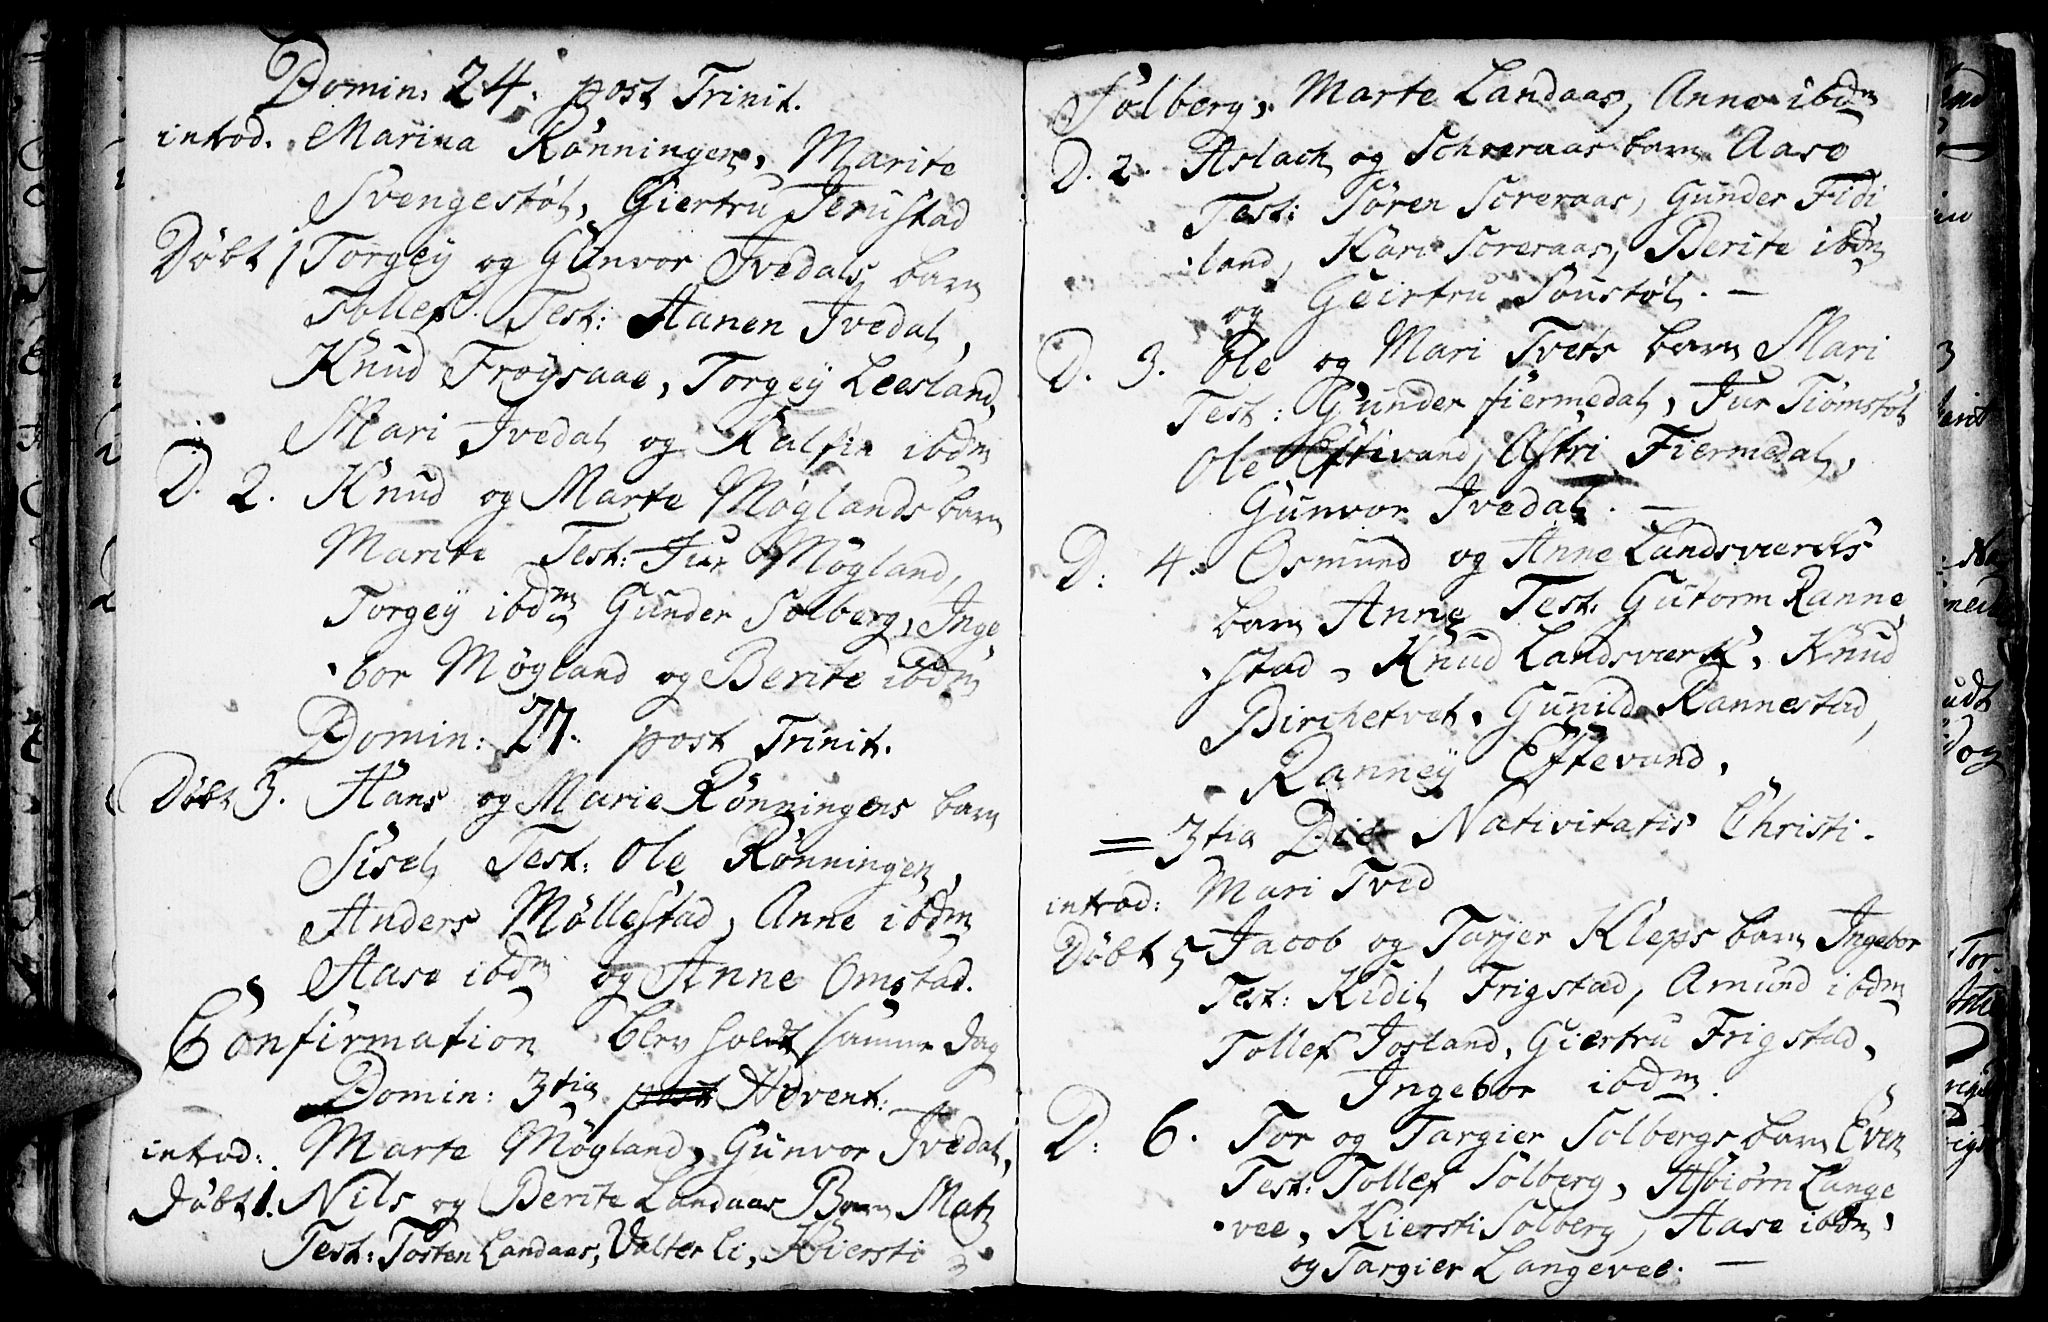 Domin: 24. post Trinit.
introd. Marina Rønningen, Marite
Svengestøl, Giertru Terustad
Døbt 1 Torgeÿ og Gunvor Ivedals barn
Tollef. Test: Hanen Ivedal,
Knud Frøysaae, Torgeÿ Leesland,
Mari Ivedal og Kalfin ibdm
D. 2. Knud og Marte Møglands barn
Marite Test: Jur Møgland,
Torgeÿ ibdm Gunder Solberg, Inge
bor Møgland og Berite ibdm
Domin: 27. post Trinit.
Døbt 3. Hans og Marie Rønningens barn
Sisel, Test: Ole Rønningen,
Anders Møllestad, Anne ibdm
Aase ibdm og Anne Omstad.
Confirmation blev holdt samme dag
Domin: 3tia post Advent:
introd: Marte Møgland, Gunvor Ivedal,
Døbt 1. Nils og Berite Landaas Barn Matz
Test: Tosten Landaas, Valter Li, Kiersti
Solberg, Marte Landaas, Anne ibdm
D. 2. Aslach og barn Aase
Test: Søren Soreraas, Gunder Fidi
land, Kari Soreraas, Berite ibdm
og Geirtru Soustøl. —
D. 3. Ole og Mari Tvets barn Mari
Test: Gunder fiermedal, Jur Tiømstøl
Ole Eftivand, Astri Fiermedal,
Gunvor Ivedal. —
D: 4. Osmund og Anne Landsværks
barn Anne Test: Gutorm Ranne
stad, Knud Landsværk, Knud
Birchetvet, Gunild Rannestad,
Ranneÿ Eftevand,
= 3tia Die Nativitatis Christi.
introd: Mari Tved
Døbt 5 Jacob og Tarjer Kleps barn Ingebor
Test: Kidil Frigstad, Amund ibdm
Tollef Josland, Giertru Frigstad,
Ingebor ibdm.
D: 6. Tor og Targier Solbergs barn Even
Test: Tollef Solberg, Asbiørn Lange
vee, Kiersti Solberg, Aase ibdm,
og Targier Langevee. —